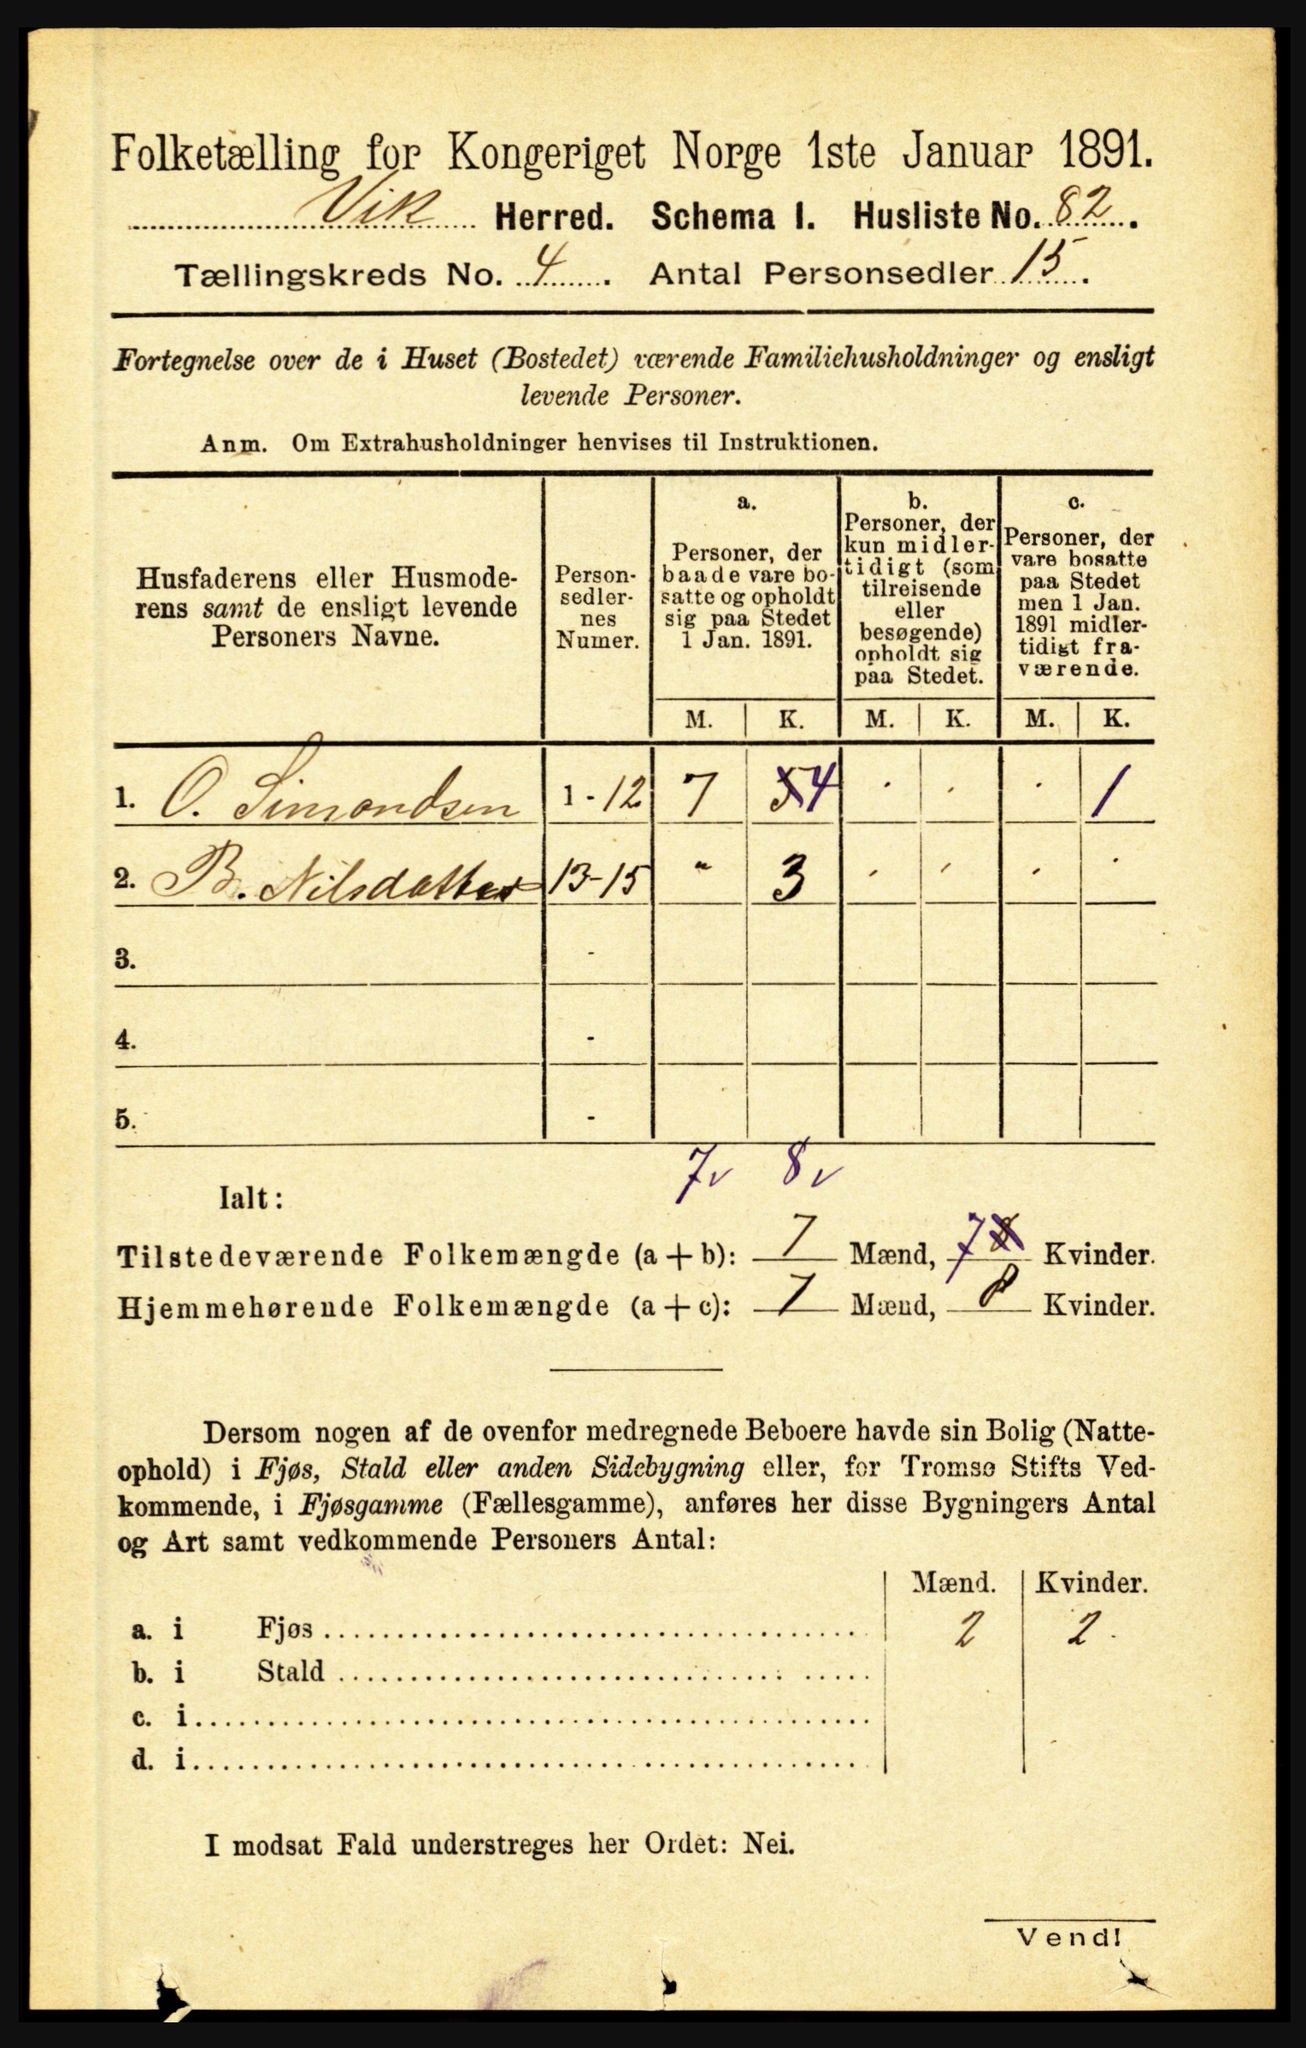 Folketælling for Kongeriget Norge 1ste Januar 1891.
Vik Herred. Schema I. Husliste No. 82.
Tællingskreds No. 4. Antal Personsedler 15.
Fortegnelse over de i Huset (Bostedet) værende Familiehusholdninger og ensligt
levende Personer.
Anm. Om Extrahusholdninger henvises til Instruktionen.
Husfaderens eller Husmode-
rens samt de ensligt levende
Personers Navne.
Person-
sedler-
nes
Numer.
a.
Personer, der
baade vare bo-
satte og opholdt
sig paa Stedet
1 Jan. 1891.
b.
Personer, der
kun midler-
tidigt (som
tilreisende
eller
besøgende)
opholdt sig
paa Stedet.
c.
Personer, der
vare bosatte
paa Stedet
men 1 Jan.
1891 midler-
tidigt fra-
værende.
M. K. M. K. M. K.
1. O. Simondsen 1 - 12 7 5 4 · · · 1
2. B. Nilsdatter 13-15 " 3 · · · ·
3. -
4. -
5. -
7v 8v
Ialt:
Tilstedeværende Folkemængde (a + b): 7 Mænd, 7 8 Kvinder.
Hjemmehørende Folkemængde (a + c): 7 Mænd, 8 Kvinder.
Dersom nogen af de ovenfor medregnede Beboere havde sin Bolig (Natte-
ophold) i Fjøs, Stald eller anden Sidebygning eller, for Tromsø Stifts Ved-
kommende, i Fjøsgamme (Fællesgamme), anføres her disse Bygningers Antal
og Art samt vedkommende Personers Antal:
Mænd. Kvinder.
a. i Fjøs 2 2.
b. i Stald
c. i
d. i
I modsat Fald understreges her Ordet: Nei.
Vend!